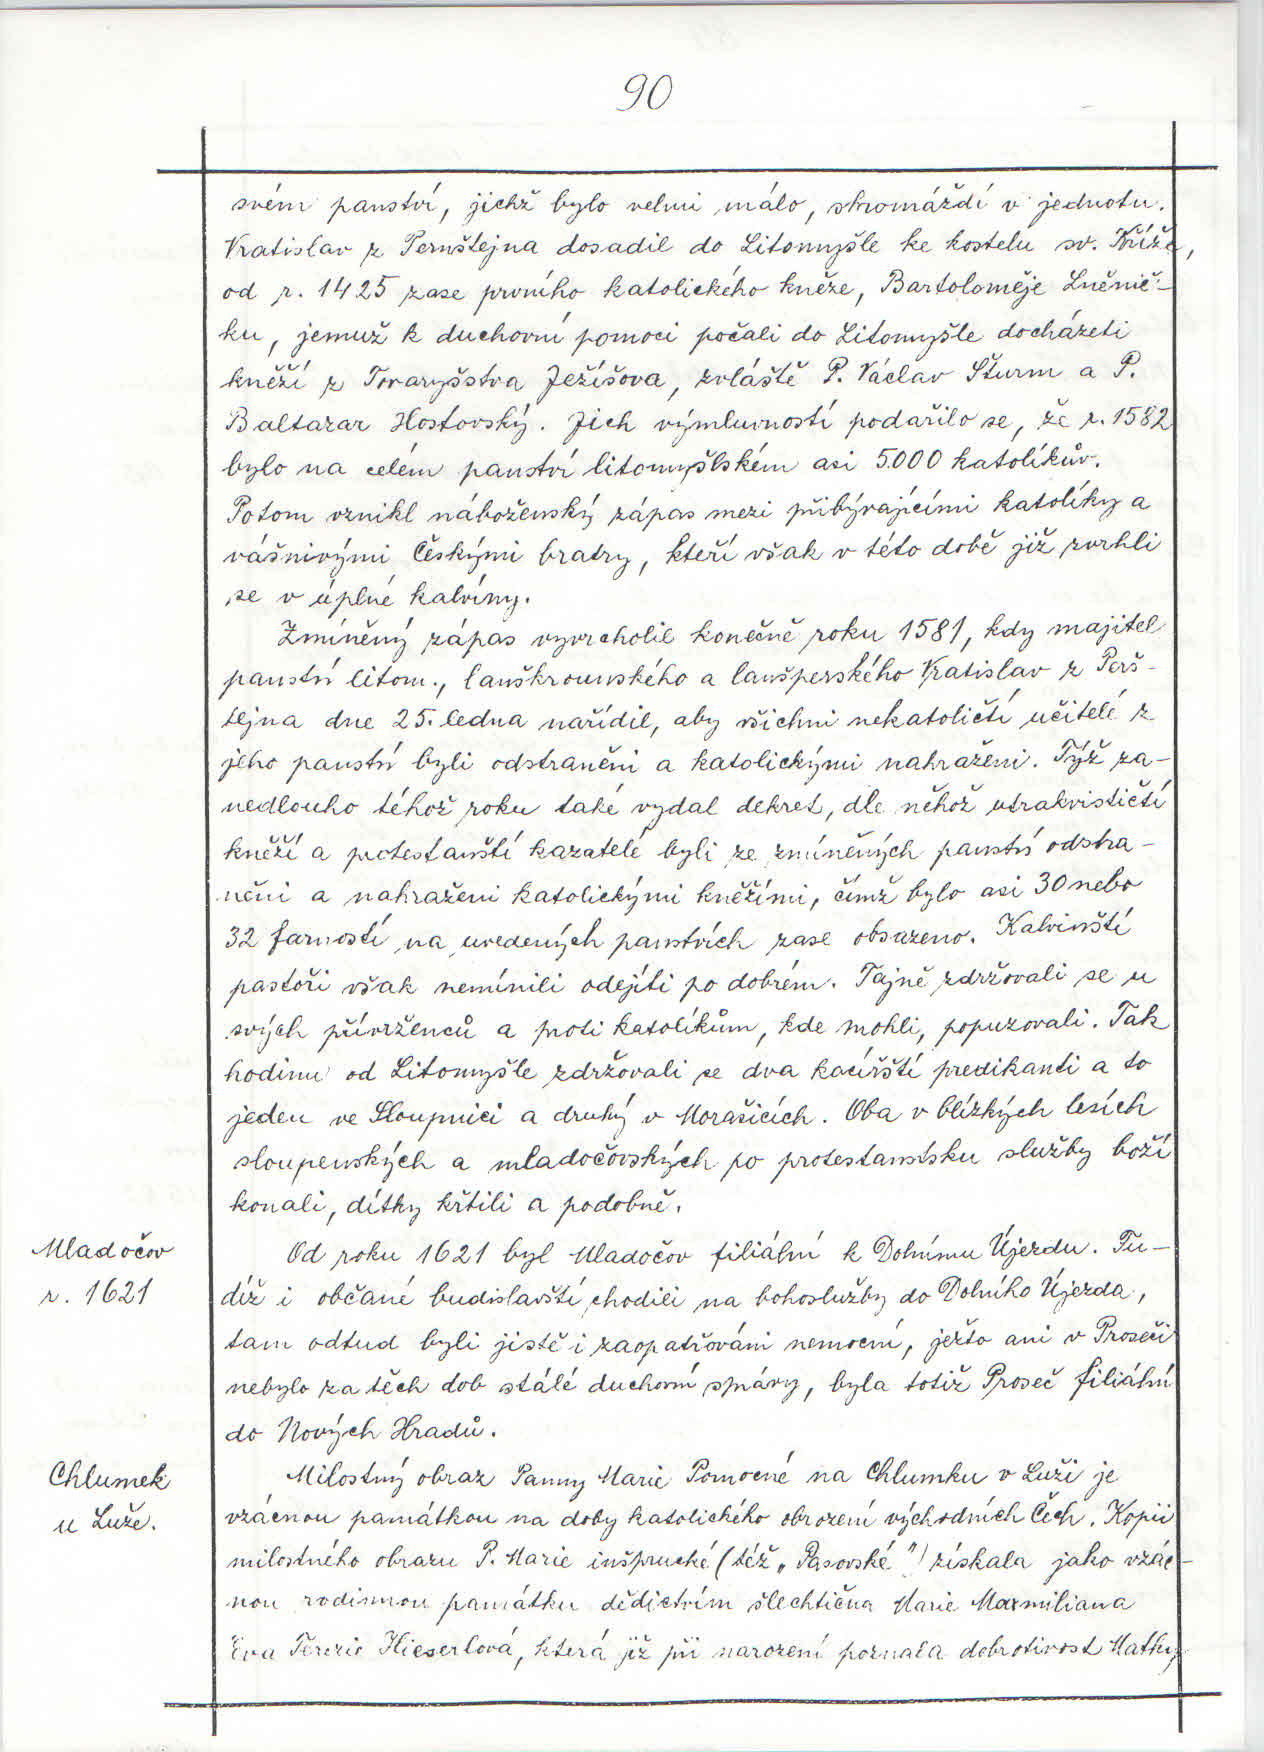 90
svém panství, jichž bylo velmi málo, shromáždí v jednotu.
Vratislav z Pernštejna dosadil do Litomyšle ke kostelu sv. Kříže,
od r. 1425 zase prvního katolického kněze, Bartoloměje Lněnič-
ku, jemuž k duchovní pomoci počali do Litomyšle docházeti
kněží z Tovaryšstva Ježíšova, zvláště P. Václav Šturm a P.
Baltazar Hostovský. Jich výmluvností podařilo se, že r. 1582
bylo na celém panství litomyšlském asi 5000 katolíkův.
Potom vznikl náboženský zápas mezi přibývajícími katolíky a
vášnivými Českými bratry, kteří však v této době již zvrhli
se v úplné kalvíny.
Zmíněný zápas vyvrcholil konečně roku 1581, kdy majitel
panství litom., lanškrounského a lanšperského Vratislav z Perš-
tejna dne 25. ledna nařídil, aby všichni nekatoličtí učitelé z
jeho panství byli odstraněni a katolickými nahraženi. Týž za-
nedlouho téhož roku také vydal dekret, dle něhož utrakvističtí
kněží a protestanští kazatelé byli ze zmíněných panství odstra-
něni a nahraženi katolickými kněžími, čímž bylo asi 30 nebo
32 farností na uvedených panstvích zase obsazeno. Kalvínští
pastoři však nemínili odejíti po dobrém. Tajně zdržovali se u
svých přívrženců a proti katolíkům, kde mohli, popuzovali. Tak
hodinu od Litomyšle zdržovali se dva kacířští predikanti a to
jeden ve Sloupnici a druhý v Morašicích. Oba v blízkých lesích
sloupenských a mladočovských po protestantsku služby boží
konali, dítky křtili a podobně.
Mladočov
r. 1621
Od roku 1621 byl Mladočov filiální k Dolnímu Újezdu. Tu-
díž i občané budislavští chodili na bohoslužby do Dolního Újezda,
tam odtud byli jistě i zaopatřováni nemocní, ježto ani v Proseči
nebylo za těch dob stálé duchovní správy, byla totiž Proseč filiální
do Nových Hradů.
Chlumek
u Luže.
Milostný obraz Panny Marie Pomocné na Chlumku v Luži je
vzácnou památkou na doby katolického obrození východních Čech. Kopii
milostného obrazu P. Marie inšprucké (též „Pasovské") získala jako vzác-
nou rodinnou památku dědictvím šlechtična Marie Maxmiliana
Eva Terezie Hieserlová, která již při narození poznala dobrotivost Matky